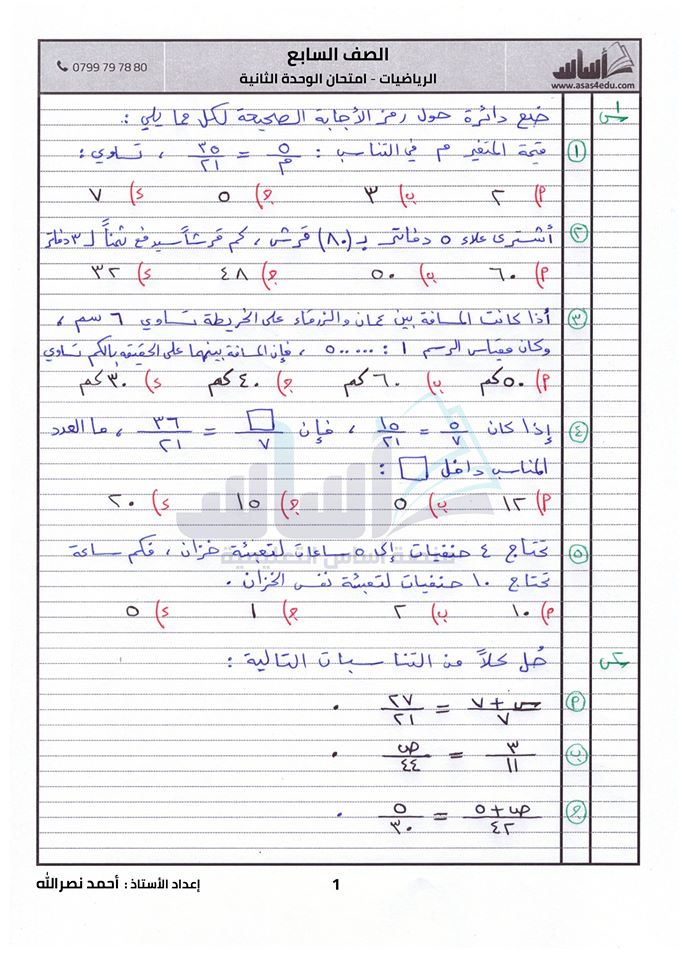 الصف السابع
الرياضيات - امتحان الوحدة الثانية
0799 79 78 80
أساس
www.asas4edu.com
س١ ضع دائرة حول رمز الأجابة الصحيحة لكل مما يلي :
١ قيمة المتغير م في التناسب : ٥/م = ٣٥/٢١ ، تساوي :
أ) ٢ ب) ٣ ج) ٥ د) ٧
٢ أشترى علاء ٥ دفاتر بـ (٨٠) قرش ، كم قرشاً سيدفع ثمناً لـ ٣ دفاتر
أ) ٦٠ ب) ٥٠ ج) ٤٨ د) ٣٢
٣ أذا كانت المسافة بين عمان والزرقاء على الخريطة تساوي ٦ سم ،
وكان مقياس الرسم ١ : ٥٠٠٠٠٠ ، فإن المسافة بينهما على الحقيقه بالكم تساوي
أ) ٥٠ كم ب) ٦٠ كم ج) ٤٠ كم د) ٣٠ كم
٤ إذا كان ٥/٧ = ١٥/٢١ ، فإن □/٧ = ٣٦/٢١ ، ما العدد
المناسب داخل □ :
أ) ١٢ ب) ٥ ج) ١٥ د) ٢٠
٥ تحتاج ٤ حنفيات إلى ٥ ساعات لتعبئة خزان ، فكم ساعة
تحتاج ١٠ حنفيات لتعبئة نفس الخزان .
أ) ١٠ ب) ٢ ج) ١ د) ٥
س٢ حُل كلاً من التناسبات التالية :
أ س + ٧/٧ = ٢٧/٢١ .
ب ٣/١١ = ص/٤٤ .
ج ص + ٥/٤٢ = ٥/٣٠ .
أساس
منصة أساس التعليمية
إعداد الأستاذ : أحمد نصرالله
1